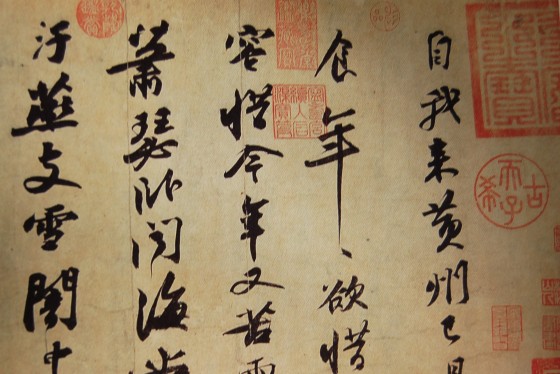 自我來黃州已
食年々欲惜
容惜今年又苦雨
蕭瑟臥聞海棠
汙燕支雪闇中
古希天子